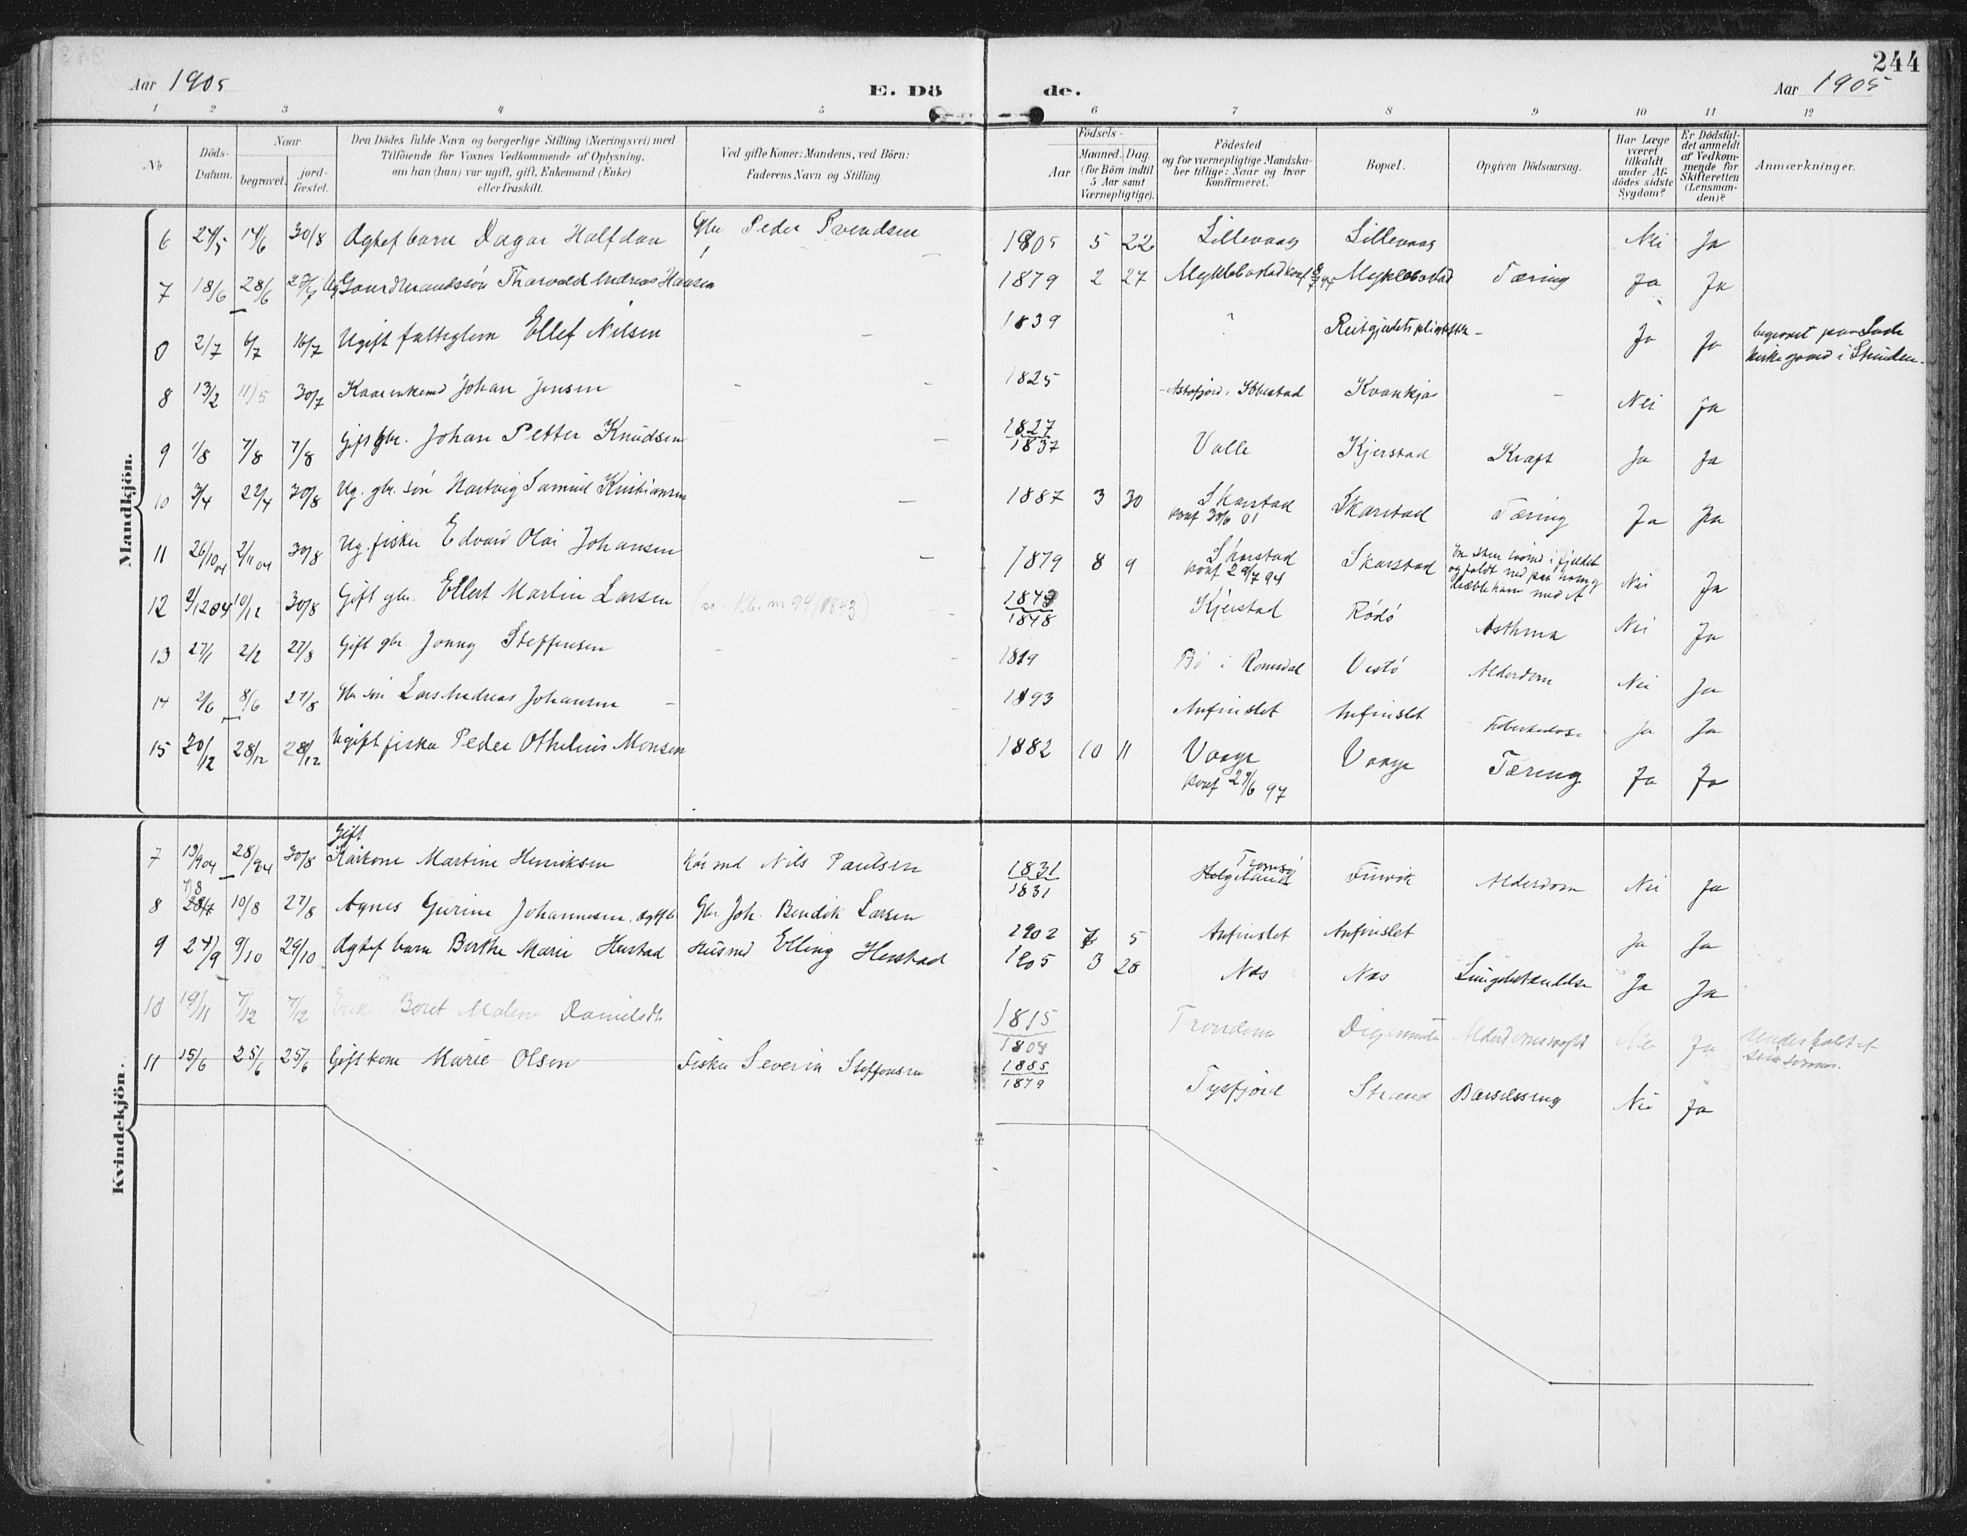 244
Aar 1905 E. Dö de. Aar 1905
1 2 3 4 5 6 7 8 9 10 11 12
No
Döds-Datum.
Naar
begravet.
jord-fæstet.
Den Dödes fulde Navn og borgerlige Stilling (Næringsvei) med
Tilföiende for Voxnes Vedkommende af Oplysning,
om han (hun) var ugift, gift, Enkemand (Enke)
eller fraskilt.
Ved gifte Koner: Mandens, ved Börn:
Faderens Navn og Stilling
Födsels-
Aar
Maaned. Dag.
(for Börn indtil
5 Aar samt
Værnepligtige).
Födested
og for værnepligtige Mandska-
ber tillige: Naar og hvor
konfirmeret.
Bopæl.
Opgiven Dödsaarsag.
Har Læge
været
tilkaldt
under Af-
dödes sidste
Sygdom?
Er Dödsfal-
det anmeldt
af Vedkom-
mende for
Skifteretten
(Lensman-
den)?
Anmærkninger.
Mandkjön.
6 24/5 14/6 30/8 Ægtef barn Dagar Halfdan Gbr Peder Svendsen 1905 5 22 Lillevaag Lillevaag Nei Ja
7 18/6 28/6 Thorvald Andreas Hansen 1879 2 27 Myklebostad Myklebostad Tæring Ja Ja
0 2/7 6/7 16/7 Ugift fattiglem Ellef Nilsen - 1839 ? - Ja Ja begravet paa Lade
kirkegaard i Strinden
8 13/2 11/5 30/7 Kaarenkemd Johan Jensen - - 1825 Astafjord i Ibbestad Kvankjo - Nei Ja
9 1/8 7/8 7/8 Gift gbr. Johan Petter Knudsen - 1827
1837 Valle Kjerstad Kræft Ja Ja
10 3/4 22/4 30/8 Ug. gbr. søn Hartvig Samuel Kristiansen - 1887 3 30 Skarstad
konf 30/6 01 Skarstad Tæring Ja Ja
11 26/10 04 2/11 04 30/8 Ug. fisker Edvard Olai Johansen - 1879 8 9 Skarstad
konf 29/7 94 Skarstad En sten løsnd i fjeldet
og faldt ned paa ham og
dræbte ham med et Nei Ja
12 9/12 04 10/12 30/8 Gift gbr. Ellert Martin Larsen nr 94/1843) 1843
1848 Kjerstad Rødø Asthma Nei Ja
13 27/1 2/2 27/8 Gift gbr Jonny Steffensen - - 1819 Bø i Romsdal Vestø Alderdom Nei Ja
14 2/6 8/6 27/8 Gbr søn Lars Andreas Johansen - - 1893 Anfinslet Anfinslet Ja Ja
15 20/12 28/12 28/12 Ugift fisker Peder Othelius Monsen 1882 10 11 Vaage
konf 29/6 97 Vaage Tæring Ja Ja
Kvindekjön.
Gift
7 13/9 04 28/9 04 30/8 Kårkone Martine Henriksen Kårmd Nils Paulsen 1831
1831 Tromsø
Helgeland Finvik Alderdom Nei Ja
8 7/8 10/8 27/8 Agnes Gurine Johannesen, ægtfb Gbr Joh. Bendik Larsen 1902 7 5 Anfinslet Anfinslet Ja Ja
9 27/9 9/10 29/10 Ægtef barn Berthe Marie Herstad Husmd Elling Herstad 1905 3 28 Næs Næs Lungebetændelse Ja Ja
10 19/11 7/12 7/12 Enke Beret Malene Danielsdt 1815
1804 Trondem Digermulen Nei Ja
11 15/6 25/6 25/6 Gift kone Marie Olsen Fisker Severin Steffensen 1885
1879 Tysfjord Strand Barselseng Nei Ja